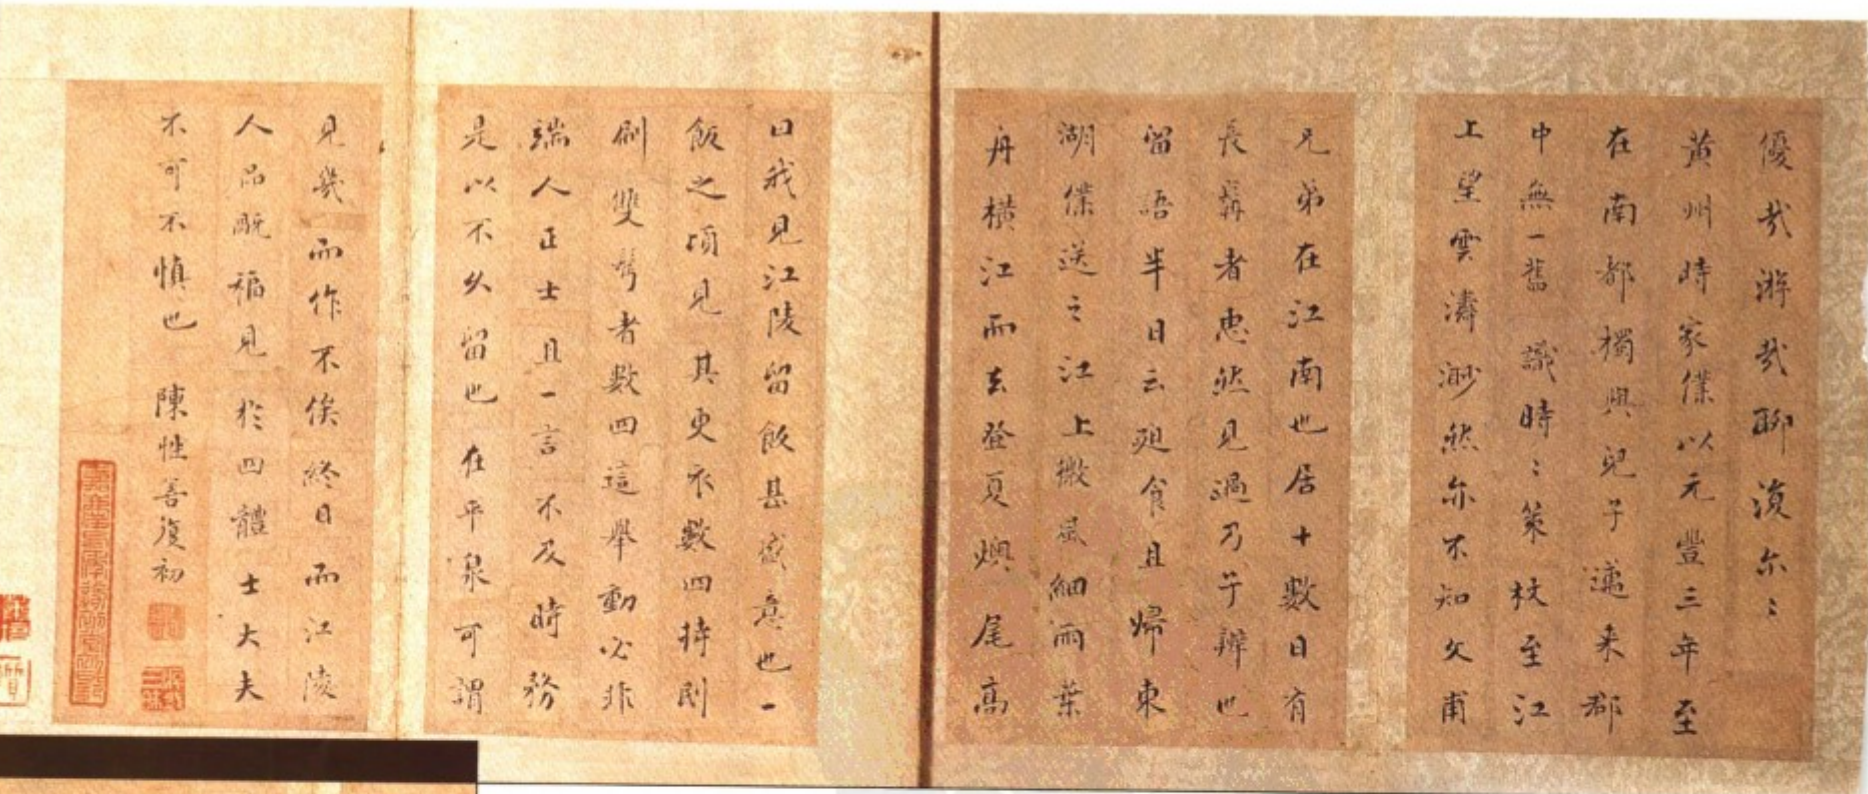 優哉游哉聊復尔〻
黄州時家僕以元豐三年至
在南都獨與兒子邁来郡
中無一舊識時〻策杖至江
上望雲濤渺然亦不知文甫
兄弟在江南也居十數日有
長髯者惠然見過乃子辯也
留語半日云廹食且歸東
湖僕送之江上微風細雨葉
舟橫江而去登夏燠尾高
曰我見江陵留飯甚盛意也一
飯之頃見其更衣數四持刷
刷雙髩者數四這舉動必非
端人正士且一言不及時務
是以不久留也在平泉可謂
見幾而作不俟終日而江陵
人品既褊見扵四體士大夫
不可不慎也 陳性善復初